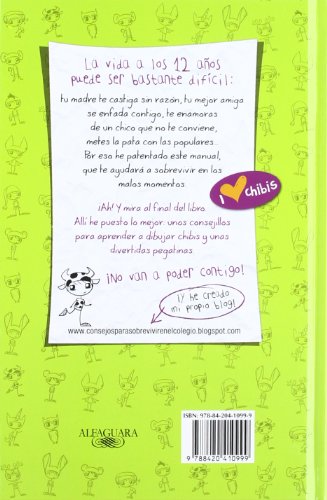 La vida a los 12 años
puede ser bastante difícil:
tu madre te castiga sin razón, tu mejor amiga
se enfada contigo, te enamoras
de un chico que no te conviene,
metes la pata con las populares...
Por eso he patentado este manual,
que te ayudará a sobrevivir en los
malos momentos.
I chibis
¡Ah! Y mira al final del libro.
Allí he puesto lo mejor: unos consejillos
para aprender a dibujar chibis y unas
divertidas pegatinas.
¡No van a poder contigo!
¡Y he creado
mi propio blog!
www.consejosparasobrevivirenelcolegio.blogspot.com
ALFAGUARA
ISBN: 978-84-204-1099-9
9 788420 410999